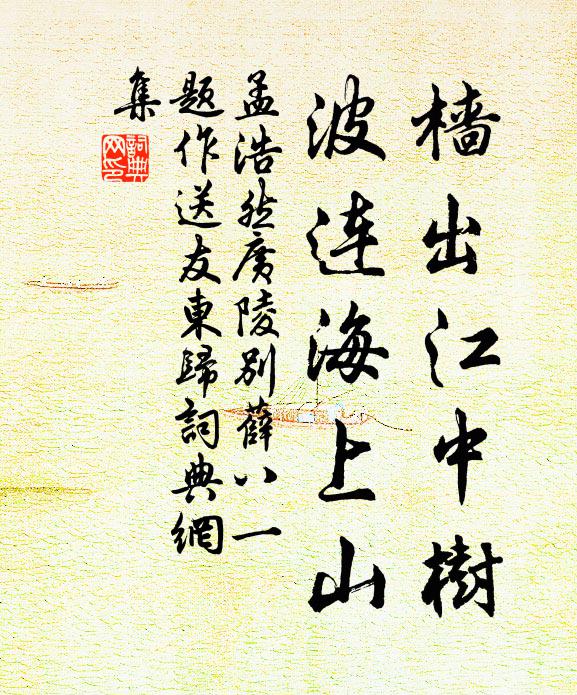 檣出江中樹
波连海上山
孟浩然廣陵別薛八一
題作送友東歸詞典網
集
詞典網印